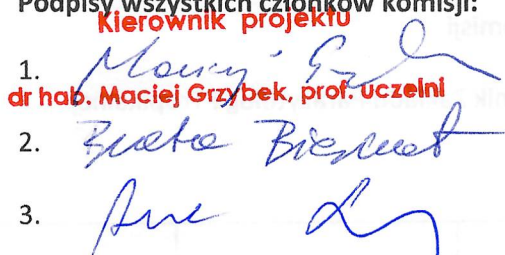 Podpisy wszystkich członków komisji:
Kierownik projektu
1. Maciej
dr hab. Maciej Grzybek, prof. uczelni
2. Beata Biernat
3.